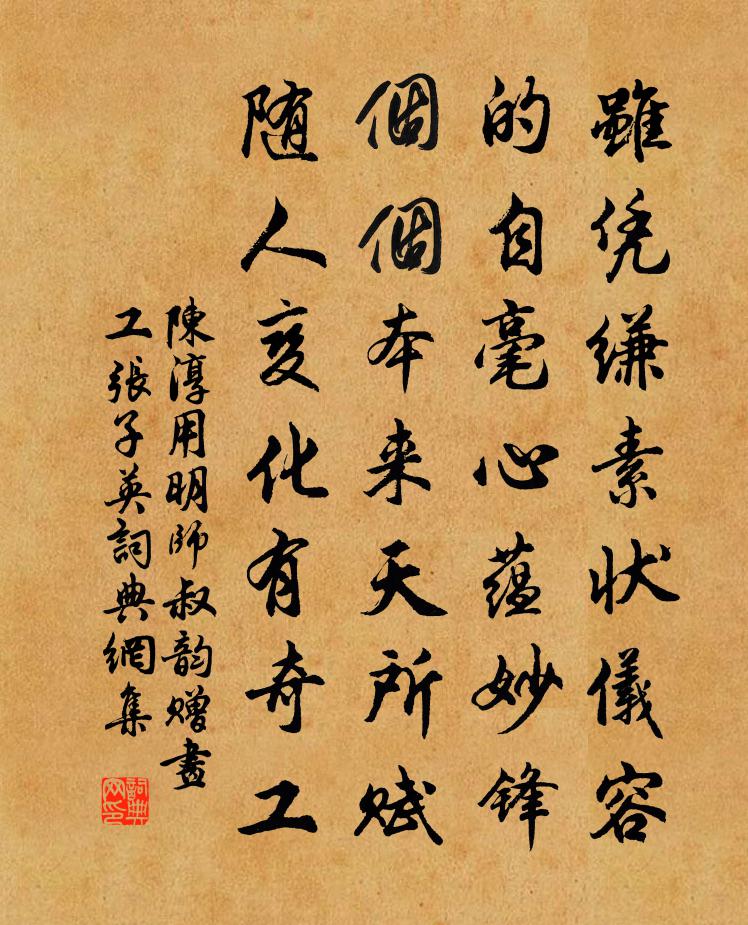 雖凭縑素状儀容
的自毫心蕴妙锋
個個本来天所赋
随人变化有奇工
陳淳用明师叔韵赠畫
工張子英詞典網集
詞典网印